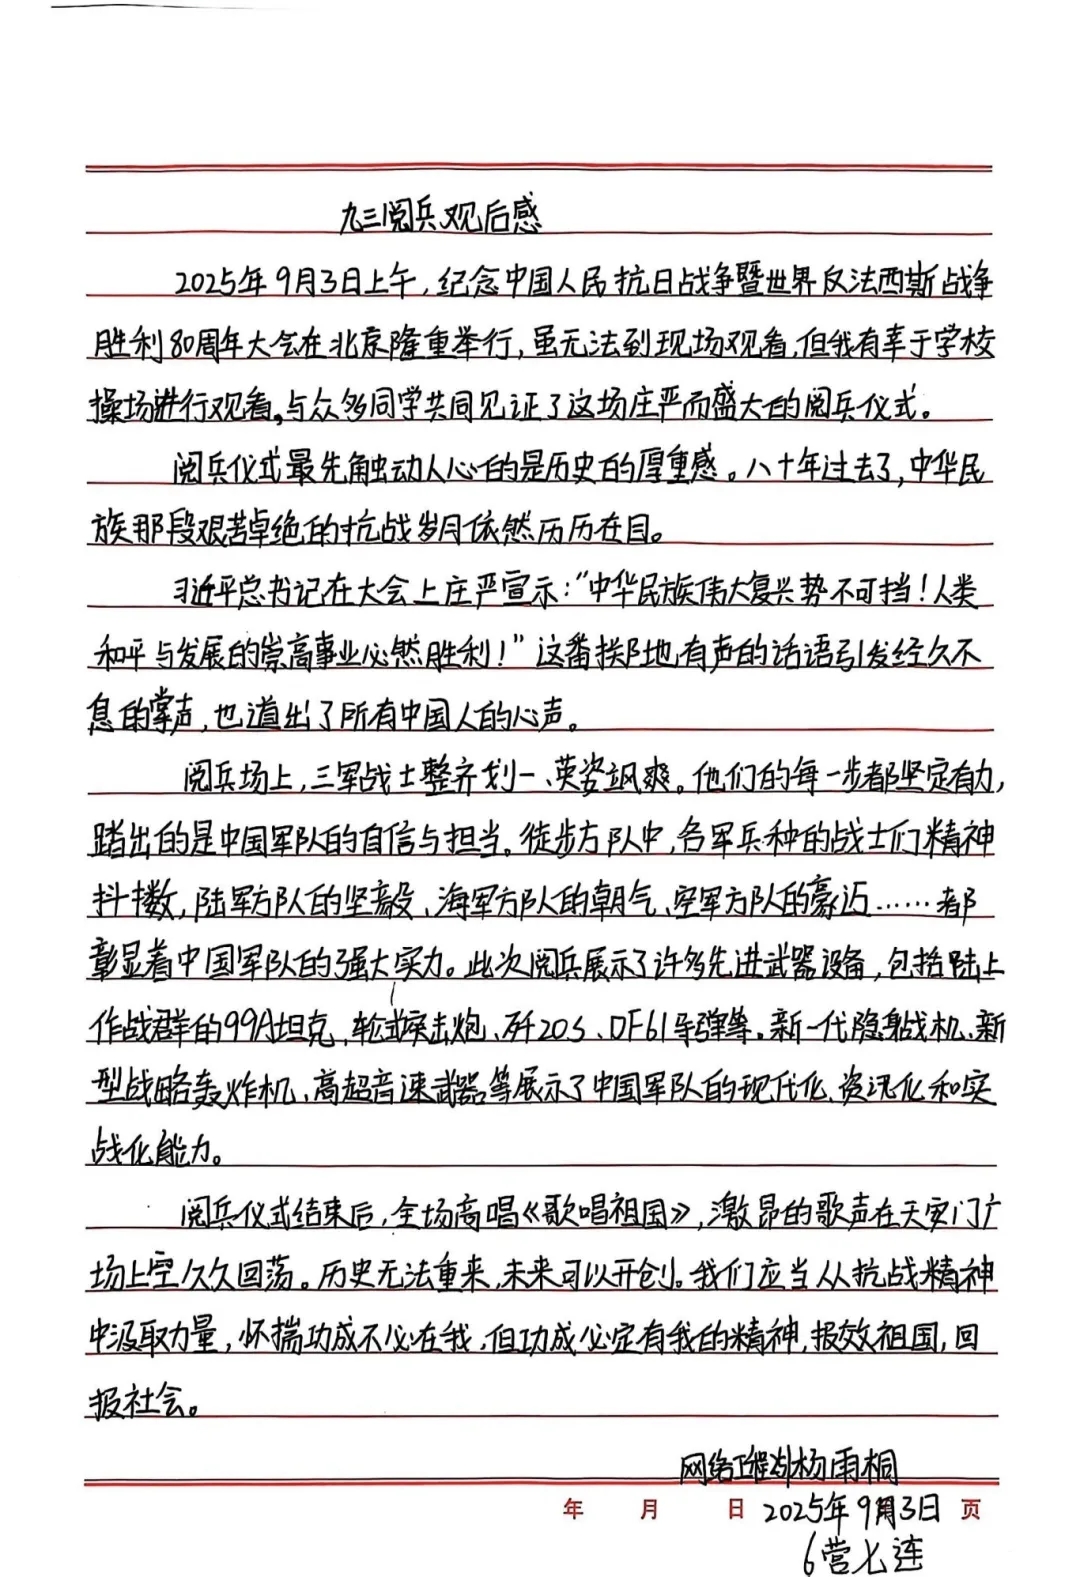 九三阅兵观后感
2025年9月3日上午,纪念中国人民抗日战争暨世界反法西斯战争
胜利80周年大会在北京隆重举行,虽无法到现场观看,但我有幸于学校
操场进行观看,与众多同学共同见证了这场庄严而盛大的阅兵仪式。
阅兵仪式最先触动人心的是历史的厚重感。八十年过去了,中华民
族那段艰苦卓绝的抗战岁月依然历历在目。
习近平总书记在大会上庄严宣示:“中华民族伟大复兴势不可挡!人类
和平与发展的崇高事业必然胜利!”这番掷地有声的话语引发经久不
息的掌声,也道出了所有中国人的心声。
阅兵场上,三军战士整齐划一、英姿飒爽。他们的每一步都坚定有力,
踏出的是中国军队的自信与担当。徒步方队中,各军兵种的战士们精神
抖擞,陆军方队的坚毅、海军方队的朝气、空军方队的豪迈……都
彰显着中国军队的强大实力。此次阅兵展示了许多先进武器设备,包括陆上
作战群的99A坦克、轮式突击炮、歼20S、DF61导弹等。新一代隐身战机、新
型战略轰炸机、高超音速武器等展示了中国军队的现代化、资讯化和实
战化能力。
阅兵仪式结束后,全场高唱《歌唱祖国》,激昂的歌声在天安门广
场上空久久回荡。历史无法重来,未来可以开创。我们应当从抗战精神
中汲取力量,怀揣功成不必在我,但功成必定有我的精神,报效祖国,回
报社会。
网络工程杨雨桐
年 月 日 2025年9月3日 页
6营七连